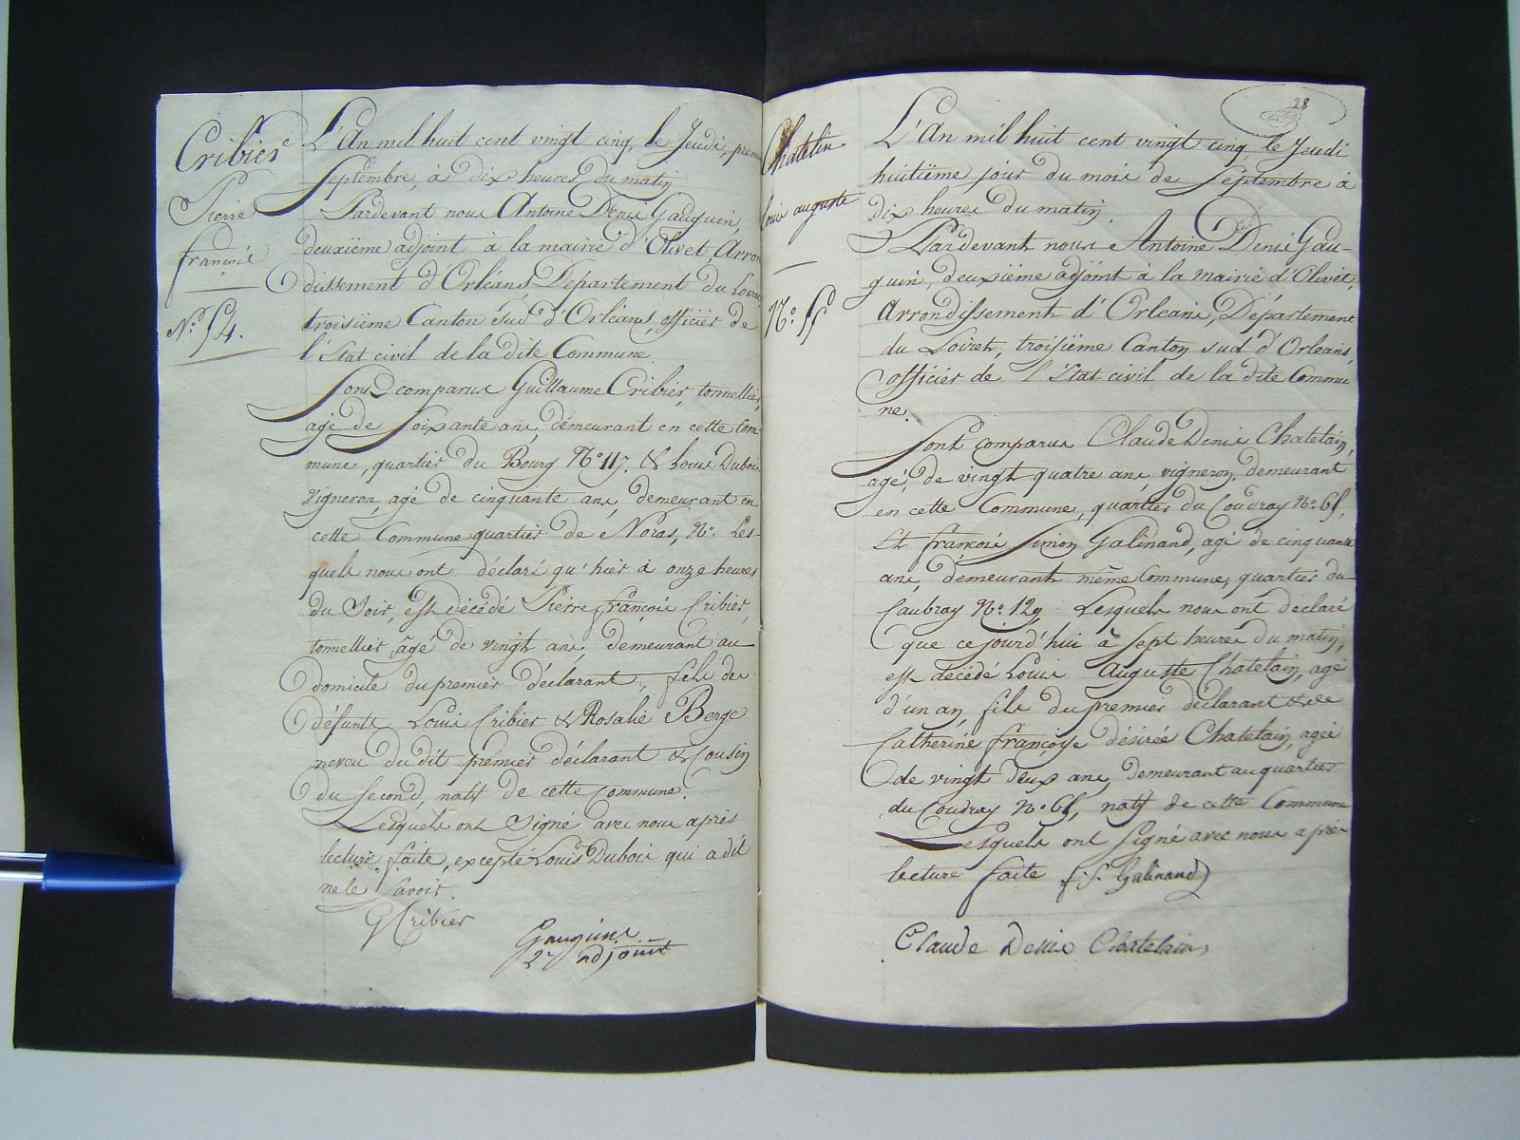 Cribier
Pierre
françois
N.° 54.
L'An mil huit cent vingt cinq, le Jeudi, prem
Septembre, à dix heures du matin
Pardevant nous Antoine Denis Gauguin,
deuxième adjoint à la mairie d'Olivet, Arron
dissement d'Orléans, Département du Loiret,
troisième Canton sud d'Orléans, officier de
l'Etat civil de la dite Commune.
Sont comparus Guillaume Cribier, tonnellier,
agé de soixante ans, démeurant en cette Com
mune, quartier du Bourg N.° 117. & Louis Dubois
vigneron, agé de cinquante ans, demeurant en
cette Commune quartier de Noras, N.° Les-
quels nous ont déclaré qu'hier à onze heures
du Soir, est décédé Pierre françois Cribier,
tonnellier, âgé de vingt ans, demeurant au
domicile du premier déclarant, fils de
défunts Louis Cribier & Rosalie Berge
neveu du dit premier déclarant & Cousin
du second, natif de cette Commune.
Lesquels ont Signé avec nous après
lecture faite, excepté Louis Dubois qui a dit
ne le savoir.
G Cribier
Gauguin
adjoint
28
Chatelin
louis auguste
N.° 55
L'An mil huit cent vingt cinq le Jeudi
huitième jour du mois de Septembre à
dix heures du matin.
Pardevant nous Antoine Denis Gau-
guin, deuxième adjoint à la mairie d'Olivet,
Arrondissement d'Orléans, Département
du Loiret, troisième Canton sud d'Orléans,
officier de l'Etat civil de la dite Commu
ne.
Sont comparus Claude Denis Chatelain,
agé, de vingt quatre ans, vigneron, demeurant
en cette Commune, quartier du Coudray N.° 65,
Et françois Simon Galinand, agé de cinquante
ans, demeurant même Commune, quartier du
Caubray N.° 129 Lesquels nous ont déclaré
que ce jourd'hui à sept heures du matin,
est décédé Louis Auguste Chatelain, agé
d'un an, fils du premier déclarant & de
Catherine françoise désirée Chatelain, agée
de vingt deux ans, demeurant au quartier
du Coudray N.° 65, natif de cette Commune
Lesquels ont signé avec nous après
lecture faite f. S. Galinand
Claude Denis Chatelain